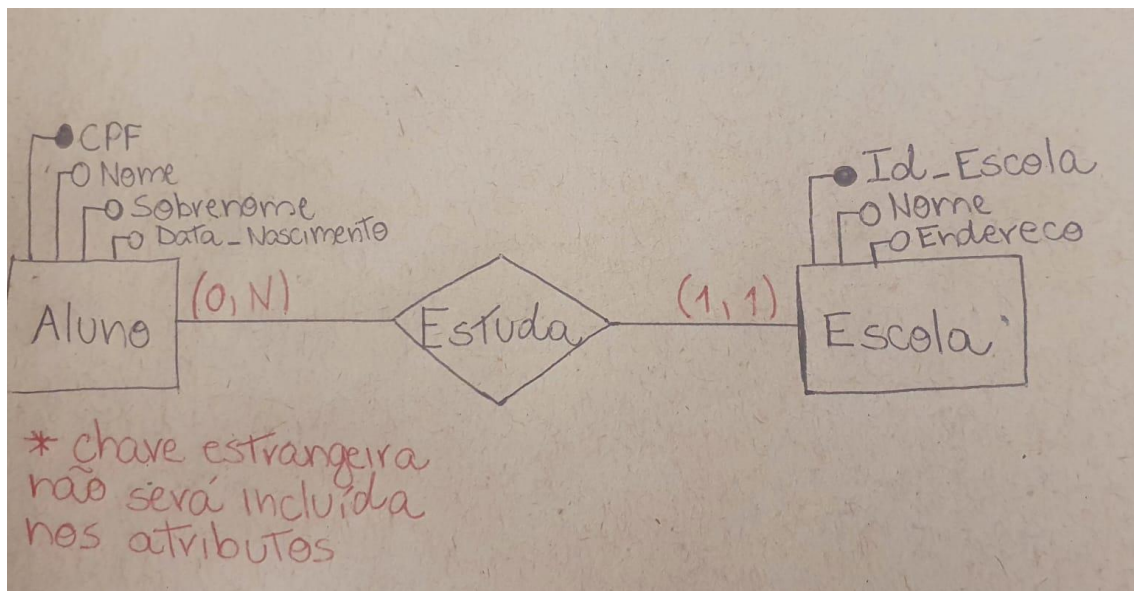 CPF
Nome
Sobrenome
Data_Nascimento
Aluno
(0,N)
Estuda
(1,1)
Id_Escola
Nome
Endereco
Escola
* chave estrangeira
não será incluída
nos atributos